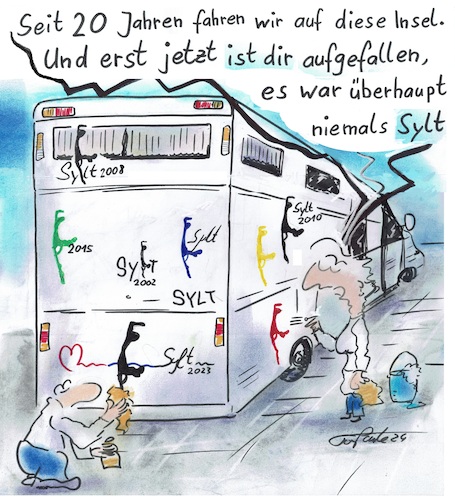 Seit 20 Jahren fahren wir auf diese Insel.
Und erst jetzt ist dir aufgefallen,
es war überhaupt
niemals Sylt
Sylt 2008
Sylt
2010
2015
Sylt
SYLT
2002
SYLT
Sylt
2023